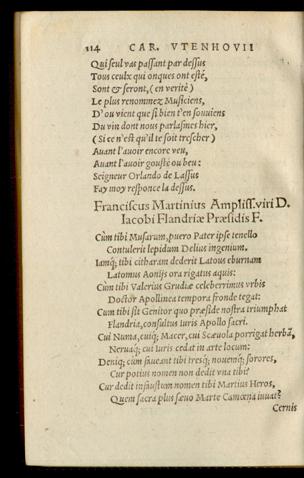 114 CAR. VTENHOVII
Qui seul vas passant par dessus
Tous ceulx qui onques ont esté,
Sont & seront, (en verité)
Le plus renommez Musiciens,
D'ou vient que si bien t'en souuiens
Du vin dont nous parlasmes hier,
(Si ce n'est qu'il te soit trescher)
Auant l'auoir encore veu,
Auant l'auoir gousté ou beu:
Seigneur Orlando de Lassus
Fay moy response la dessus.
Franciscus Martinius Ampliss. viri D.
Iacobi Flandriæ Præsidis F.
Cùm tibi Musarum, puero Pater ipse tenello
Contulerit lepidum Delius ingenium.
Iamq; tibi citharam dederit Latous eburnam
Latomus Aonijs ora rigatus aquis:
Cùm tibi Valerius Grudiæ celeberrimus vrbis
Doctor Apollinea tempora fronde tegat:
Cùm tibi sit Genitor quo præside nostra triumphat
Flandria, consultus iuris Apollo sacri.
Cui Numa, cuiq; Macer, cui Scæuola porrigat herbã,
Neruaq; cui Iuris cedat in arte locum:
Deniq; cùm faueant tibi tresq; nouemq; sorores,
Cur potius nomen non dedit vna tibi?
Cur dedit infaustum nomen tibi Martius Heros,
Quem sacra plus sæuo Marte Camœna iuuat?
Cernis